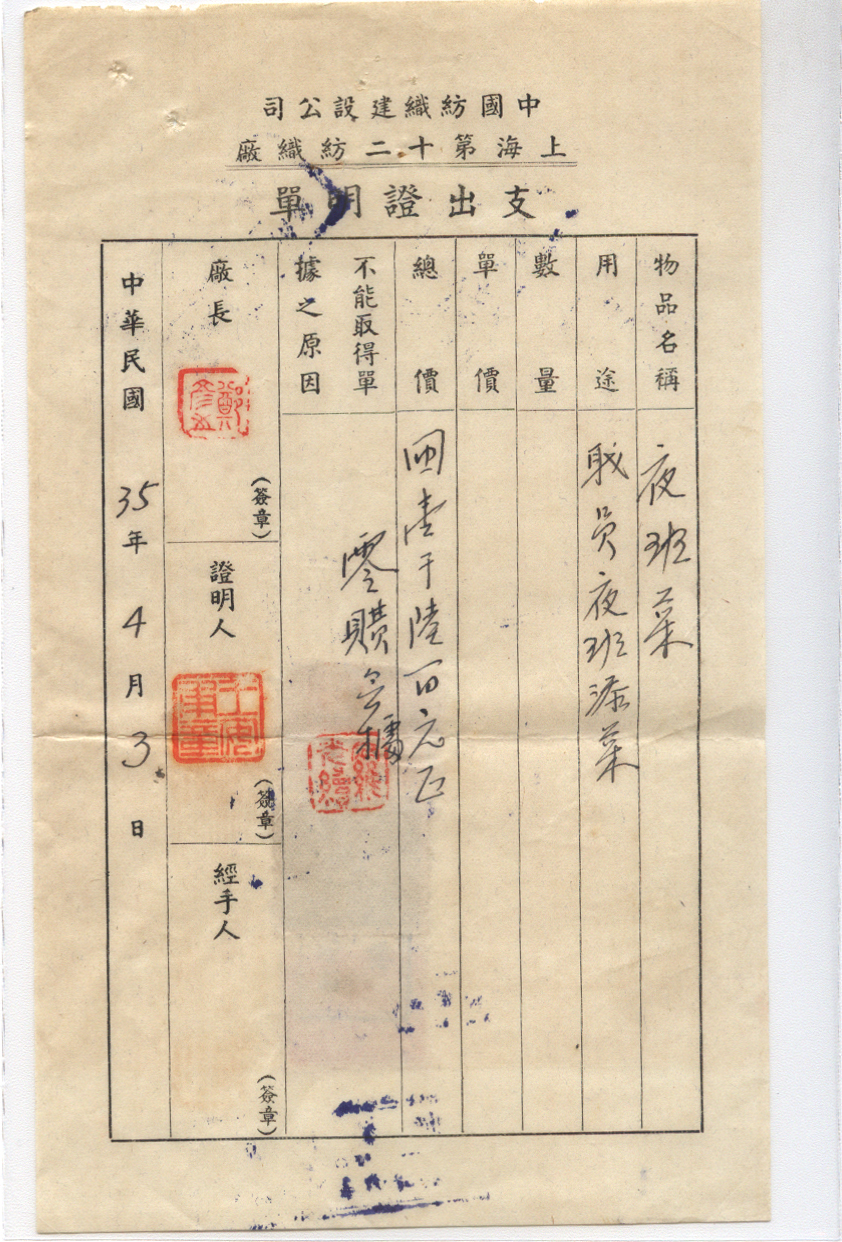 中國紡織建設公司
上海第十二紡織廠
支出證明單
物品名稱 夜班菜
用途 職員夜班添菜
數量
單價
總價 國壹千陸百元正
不能取得單據之原因 零購無據
廠長 (簽章)
證明人 (簽章)
經手人 (簽章)
中華民國 35年 4月 3日